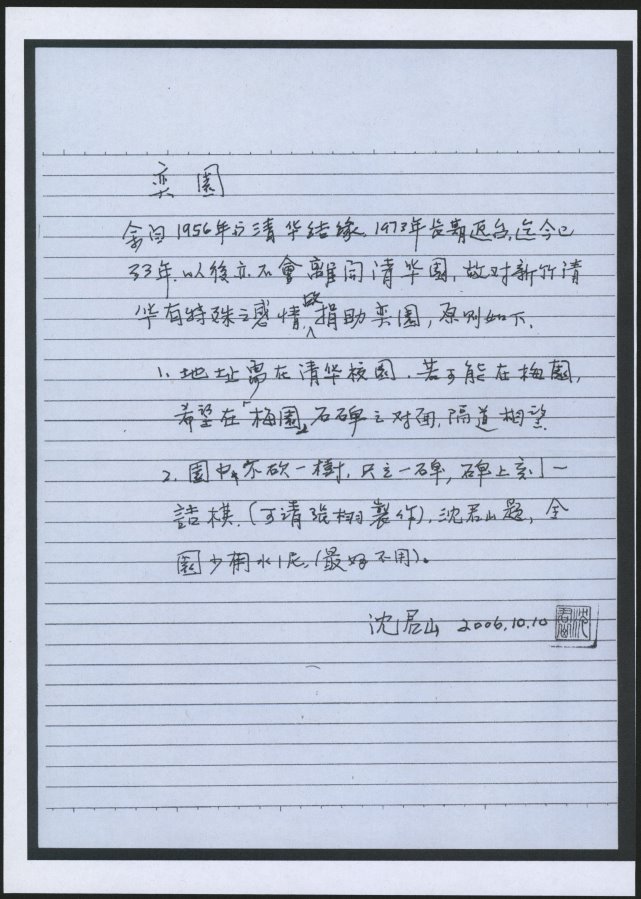 奕園
余自1956年与清华结缘,1973年长期返台,迄今已
33年,以後亦不會離開清华園,故对新竹清
华有特殊之感情,故捐助奕園,原则如下,
1. 地址需在清华校園,若可能在梅園,
希望在「梅園」石碑之对面,隔道相望
2. 園中不砍一樹,只立一碑,碑上刻一
詰棋,(可请張栩製作),沈君山題,全
園少用水泥,(最好不用)。
沈君山 2006.10.10